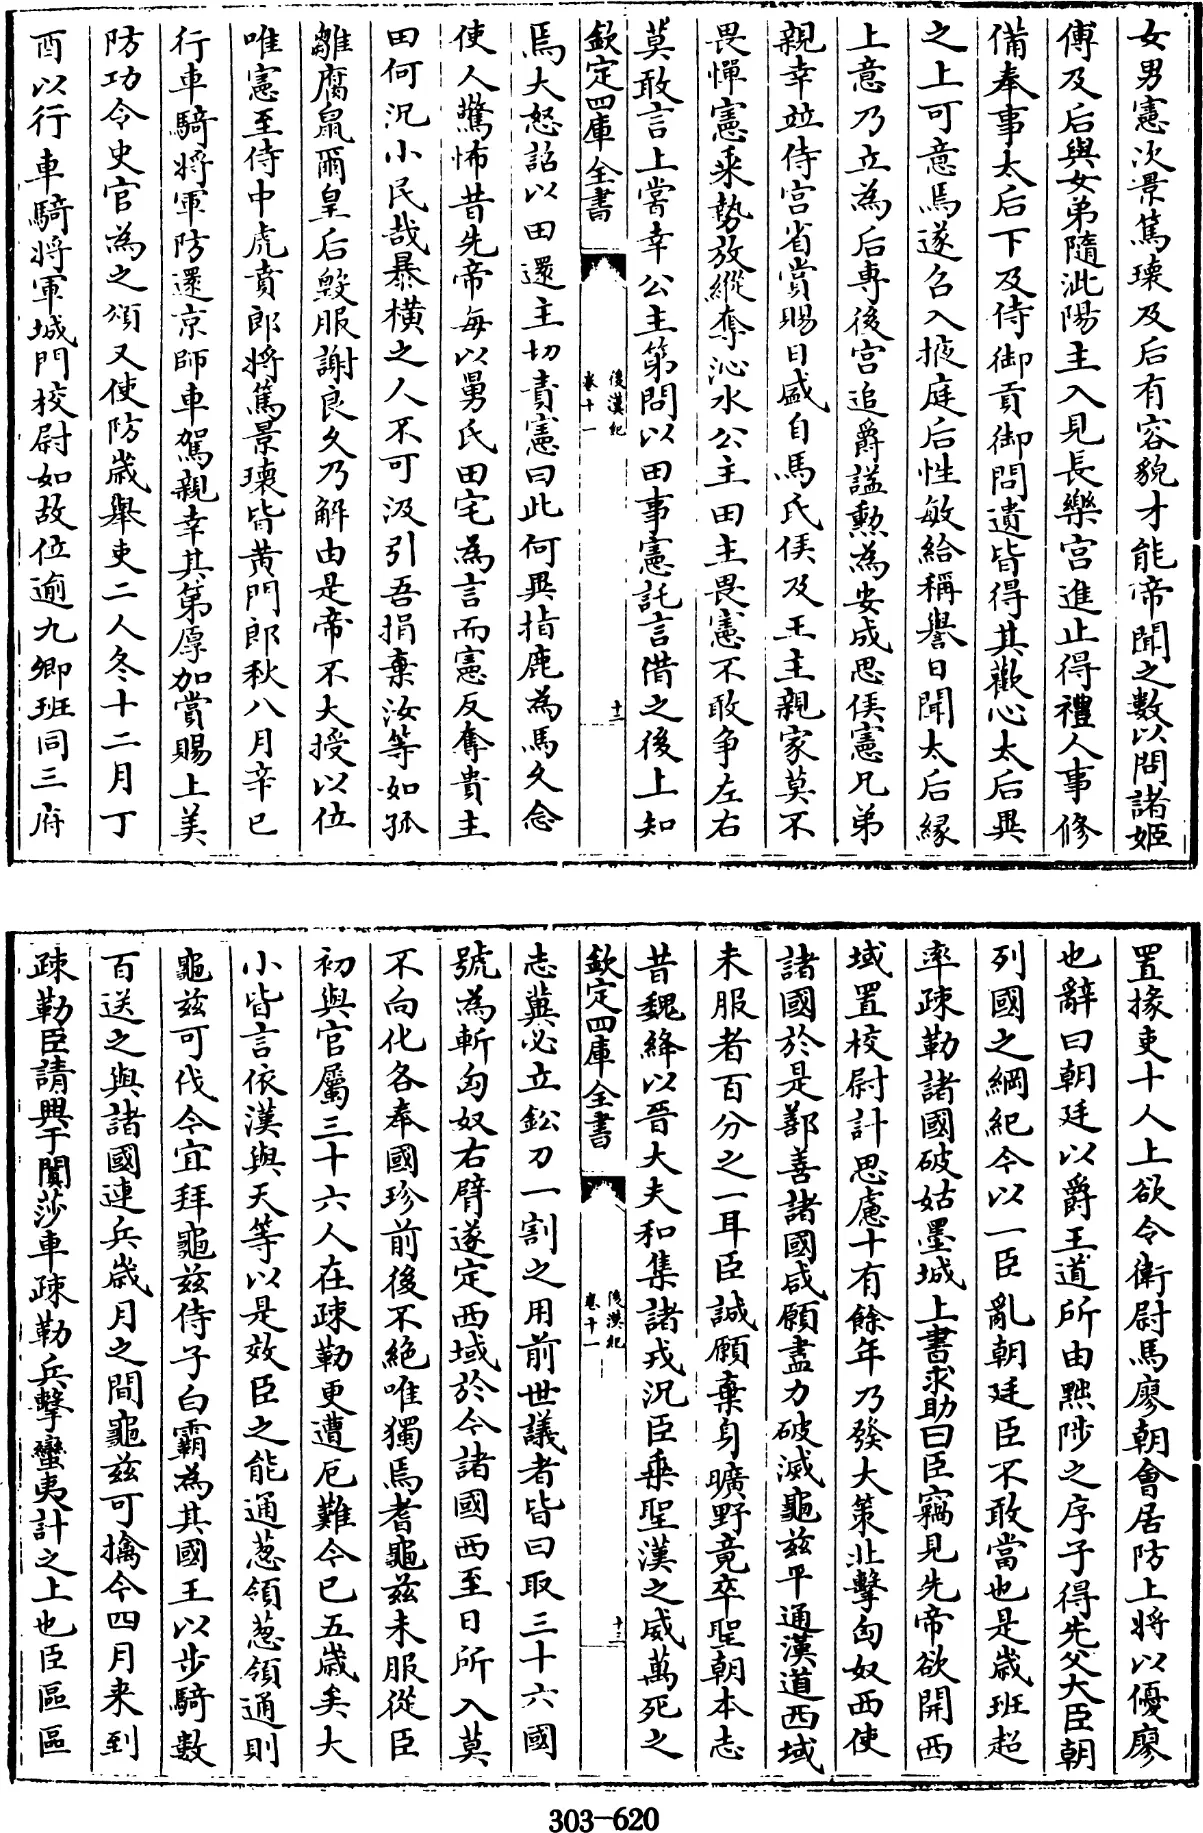 女男憲次景篤瓌及后有容貌才能帝聞之數以問諸姬
傅及后與女弟隨沘陽主入見長樂宮進止得禮人事修
備奉事太后下及侍御貢御問遺皆得其歡心太后異
之上可意焉遂召入掖庭后性敏給稱譽日聞太后緣
上意乃立為后專後宮追爵諡勲為安成思侯憲兄弟
親幸竝侍宮省賞賜日盛自馬氏侯及王主親家莫不
畏憚憲乘勢放縱奪沁水公主田主畏憲不敢争左右
莫敢言上嘗幸公主第問以田事憲託言借之後上知
欽定四庫全書
後漢紀
卷十一
十二
焉大怒詔以田還主切責憲曰此何異指鹿為馬久念
使人驚怖昔先帝每以舅氏田宅為言而憲反奪貴主
田何況小民哉暴橫之人不可汲引吾捐棄汝等如孤
雛腐鼠爾皇后毀服謝良久乃解由是帝不大授以位
唯憲至侍中虎賁郎將篤景瓌皆黄門郎秋八月辛巳
行車騎將軍防還京師車駕親幸其第厚加賞賜上美
防功令史官為之頌又使防歲舉吏二人冬十二月丁
酉以行車騎將軍城門校尉如故位逾九卿班同三府
置掾吏十人上欲令衛尉馬廖朝會居防上將以優廖
也辭曰朝廷以爵王道所由黜陟之序子得先父大臣朝
列國之綱紀今以一臣亂朝廷臣不敢當也是歲班超
率疎勒諸國破姑墨城上書求助曰臣竊見先帝欲開西
域置校尉計思慮十有餘年乃發大策北擊匈奴西使
諸國於是鄯善諸國咸願盡力破滅龜兹平通漢道西域
未服者百分之一耳臣誠願棄身曠野竟卒聖朝本志
昔魏絳以晉大夫和集諸戎況臣乘聖漢之威萬死之
欽定四庫全書
後漢紀
卷十一
十三
志冀必立鉛刀一割之用前世議者皆曰取三十六國
號為斬匈奴右臂遂定西域於今諸國西至日所入莫
不向化各奉國珍前後不絕唯獨焉耆龜兹未服從臣
初與官屬三十六人在疎勒更遭厄難今已五歲矣大
小皆言依漢與天等以是效臣之能通葱領葱領通則
龜兹可伐今宜拜龜兹侍子白霸為其國王以步騎數
百送之與諸國連兵歲月之間龜兹可擒今四月来到
疎勒臣請與于闐莎車疎勒兵擊蠻夷計之上也臣區區
303-620